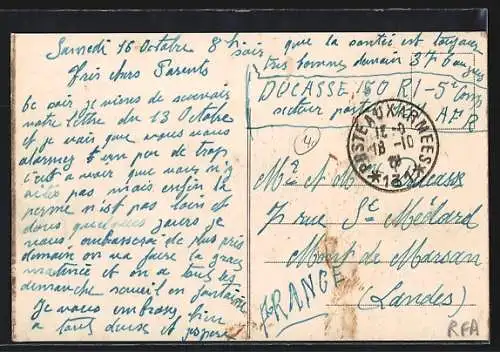 Samedi 16 Octobre 8h soir
Très chers Parents
Ce soir je viens de recevoir
votre lettre du 13 Octobre
et je vois que vous vous
alarmez un peu de trop
c'est à voir que vous n'y
pas mais enfin la
perme n'est pas loin et
dans quelques jours je
vous embrasserai de plus près
demain on va faire la grasse
matinée et on a tous les
dimanche
Je vous embrasse bien
à tous deux et
que la santé est toujours
très bonne demain 376 au jus
DUCASSE 150 RI - 5e Comp
secteur postal
AFR
4
POSTE AUX ARMEES
18 -10
*131*
Mr et Me Ducasse
7 rue St Médard
Mont de Marsan
(Landes)
FRANCE
RFA